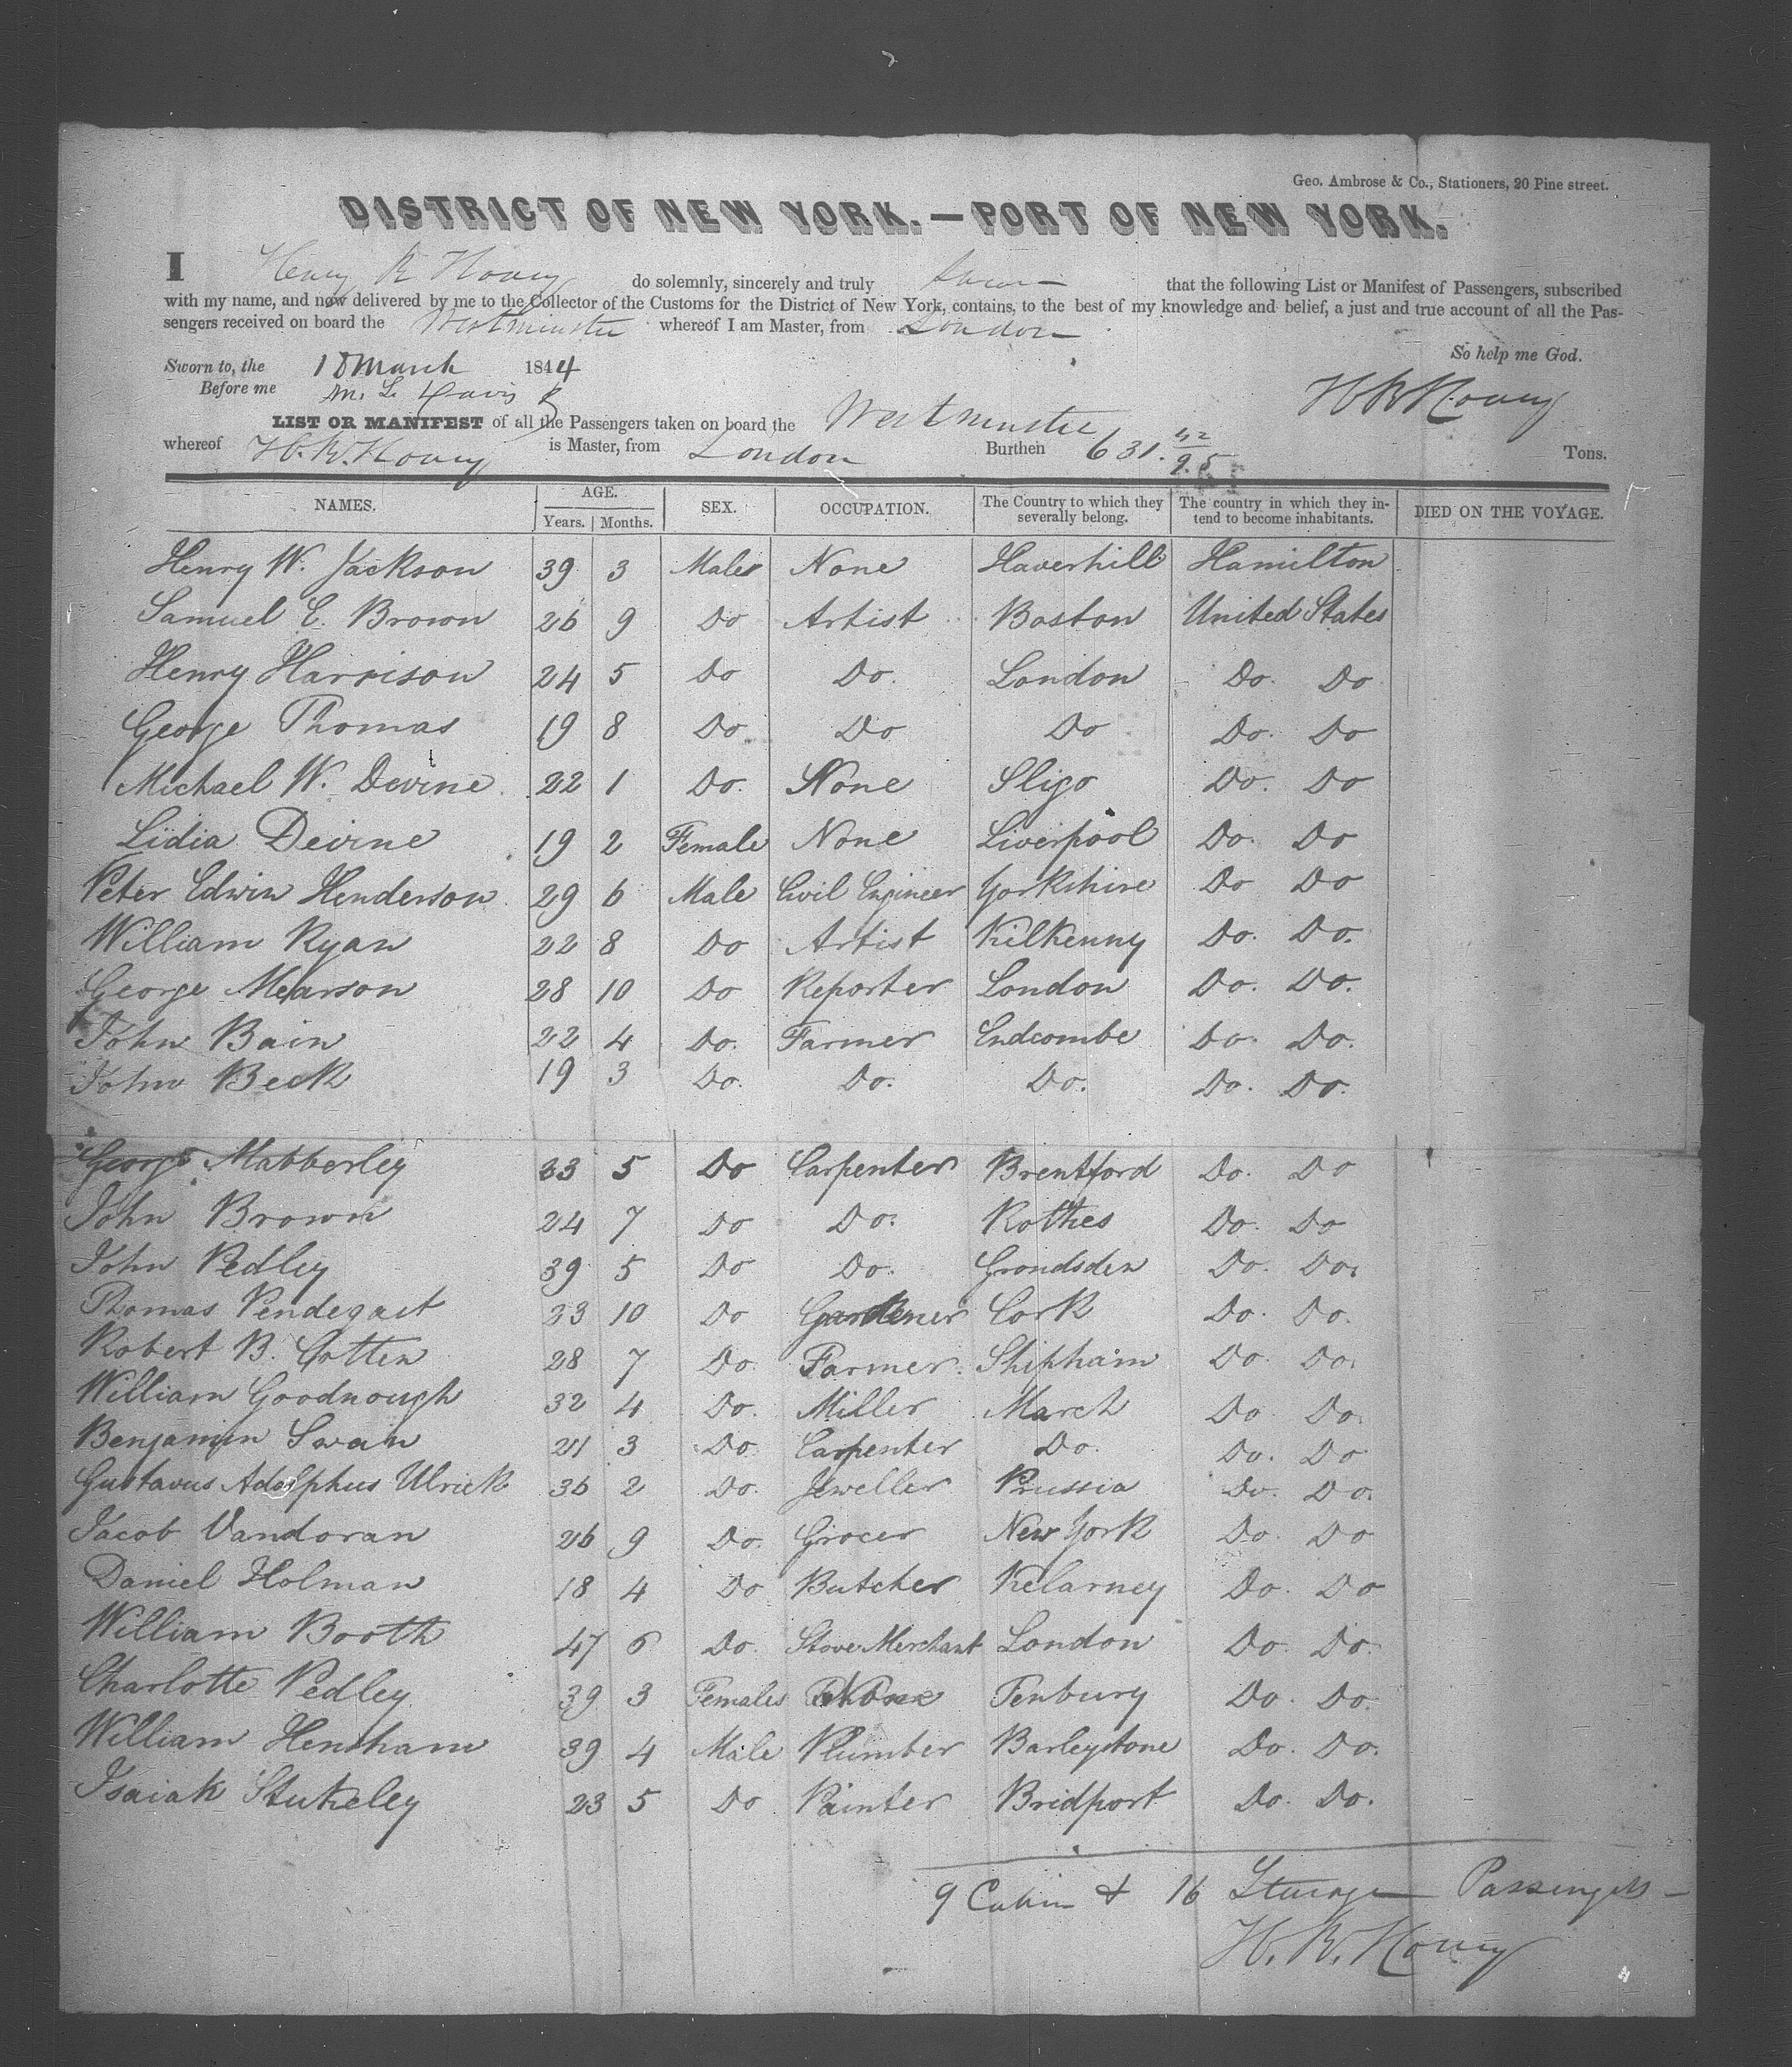 Geo. Ambrose & Co., Stationers, 20 Pine street.
DISTRICT OF NEW YORK.—PORT OF NEW YORK.
I Henry R Hovey do solemnly, sincerely and truly swear that the following List or Manifest of Passengers, subscribed
with my name, and now delivered by me to the Collector of the Customs for the District of New York, contains, to the best of my knowledge and belief, a just and true account of all the Pas-
sengers received on board the Westminster whereof I am Master, from London
So help me God.
Sworn to, the 18 March 1844
Before me M. L. Davis
H R Hovey
LIST OR MANIFEST of all the Passengers taken on board the Westminster
whereof H. R. Hovey is Master, from London Burthen 631. 42/95 Tons.
NAMES. AGE. Years. Months. SEX. OCCUPATION. The Country to which they severally belong. The country in which they intend to become inhabitants. DIED ON THE VOYAGE.
Henry W. Jackson 39 3 Males None Haverhill Hamilton
Samuel E. Brown 26 9 Do Artist Boston United States
Henry Harrison 24 5 Do Do. London Do. Do
George Thomas 19 8 Do. Do Do Do. Do
Michael W. Devine 22 1 Do. None Sligo Do. Do
Lidia Devine 19 2 Female None Liverpool Do. Do
Peter Edwin Henderson 29 6 Male Civil Engineer Yorkshire Do Do
William Ryan 22 8 Do Artist Kilkenny Do. Do.
George Mearson 28 10 Do Reporter London Do. Do.
John Bain 22 4 Do. Farmer Endcombe Do. Do.
John Beck 19 3 Do. Do. Do. Do. Do.
George Mabberley 23 5 Do Carpenter Brentford Do. Do
John Brown 24 7 Do Do. Rothes Do. Do
John Pedley 39 5 Do Do. Grondsden Do. Do.
Thomas Pendegast 23 10 Do Gardener Cork Do. Do.
Robert B. Cotten 28 7 Do. Farmer Shipham Do. Do.
William Goodnough 32 4 Do. Miller March Do Do.
Benjamin Swan 21 3 Do. Carpenter Do. Do. Do
Gustavus Adolphus Ulrick 36 2 Do. Jeweller Prussia Do. Do.
Jacob Vandoran 26 9 Do. Grocer New York Do. Do
Daniel Holman 18 4 Do Butcher Kelarney Do. Do
William Booth 47 6 Do. Stove Merchant London Do. Do.
Charlotte Pedley 39 3 Females None Tenbury Do. Do.
William Hensham 39 4 Male Plumber Barleystone Do. Do.
Isaiah Stukeley 23 5 Do Painter Bridport Do. Do.
9 Cabin & 16 Steerage Passengers
H. R. Hovey